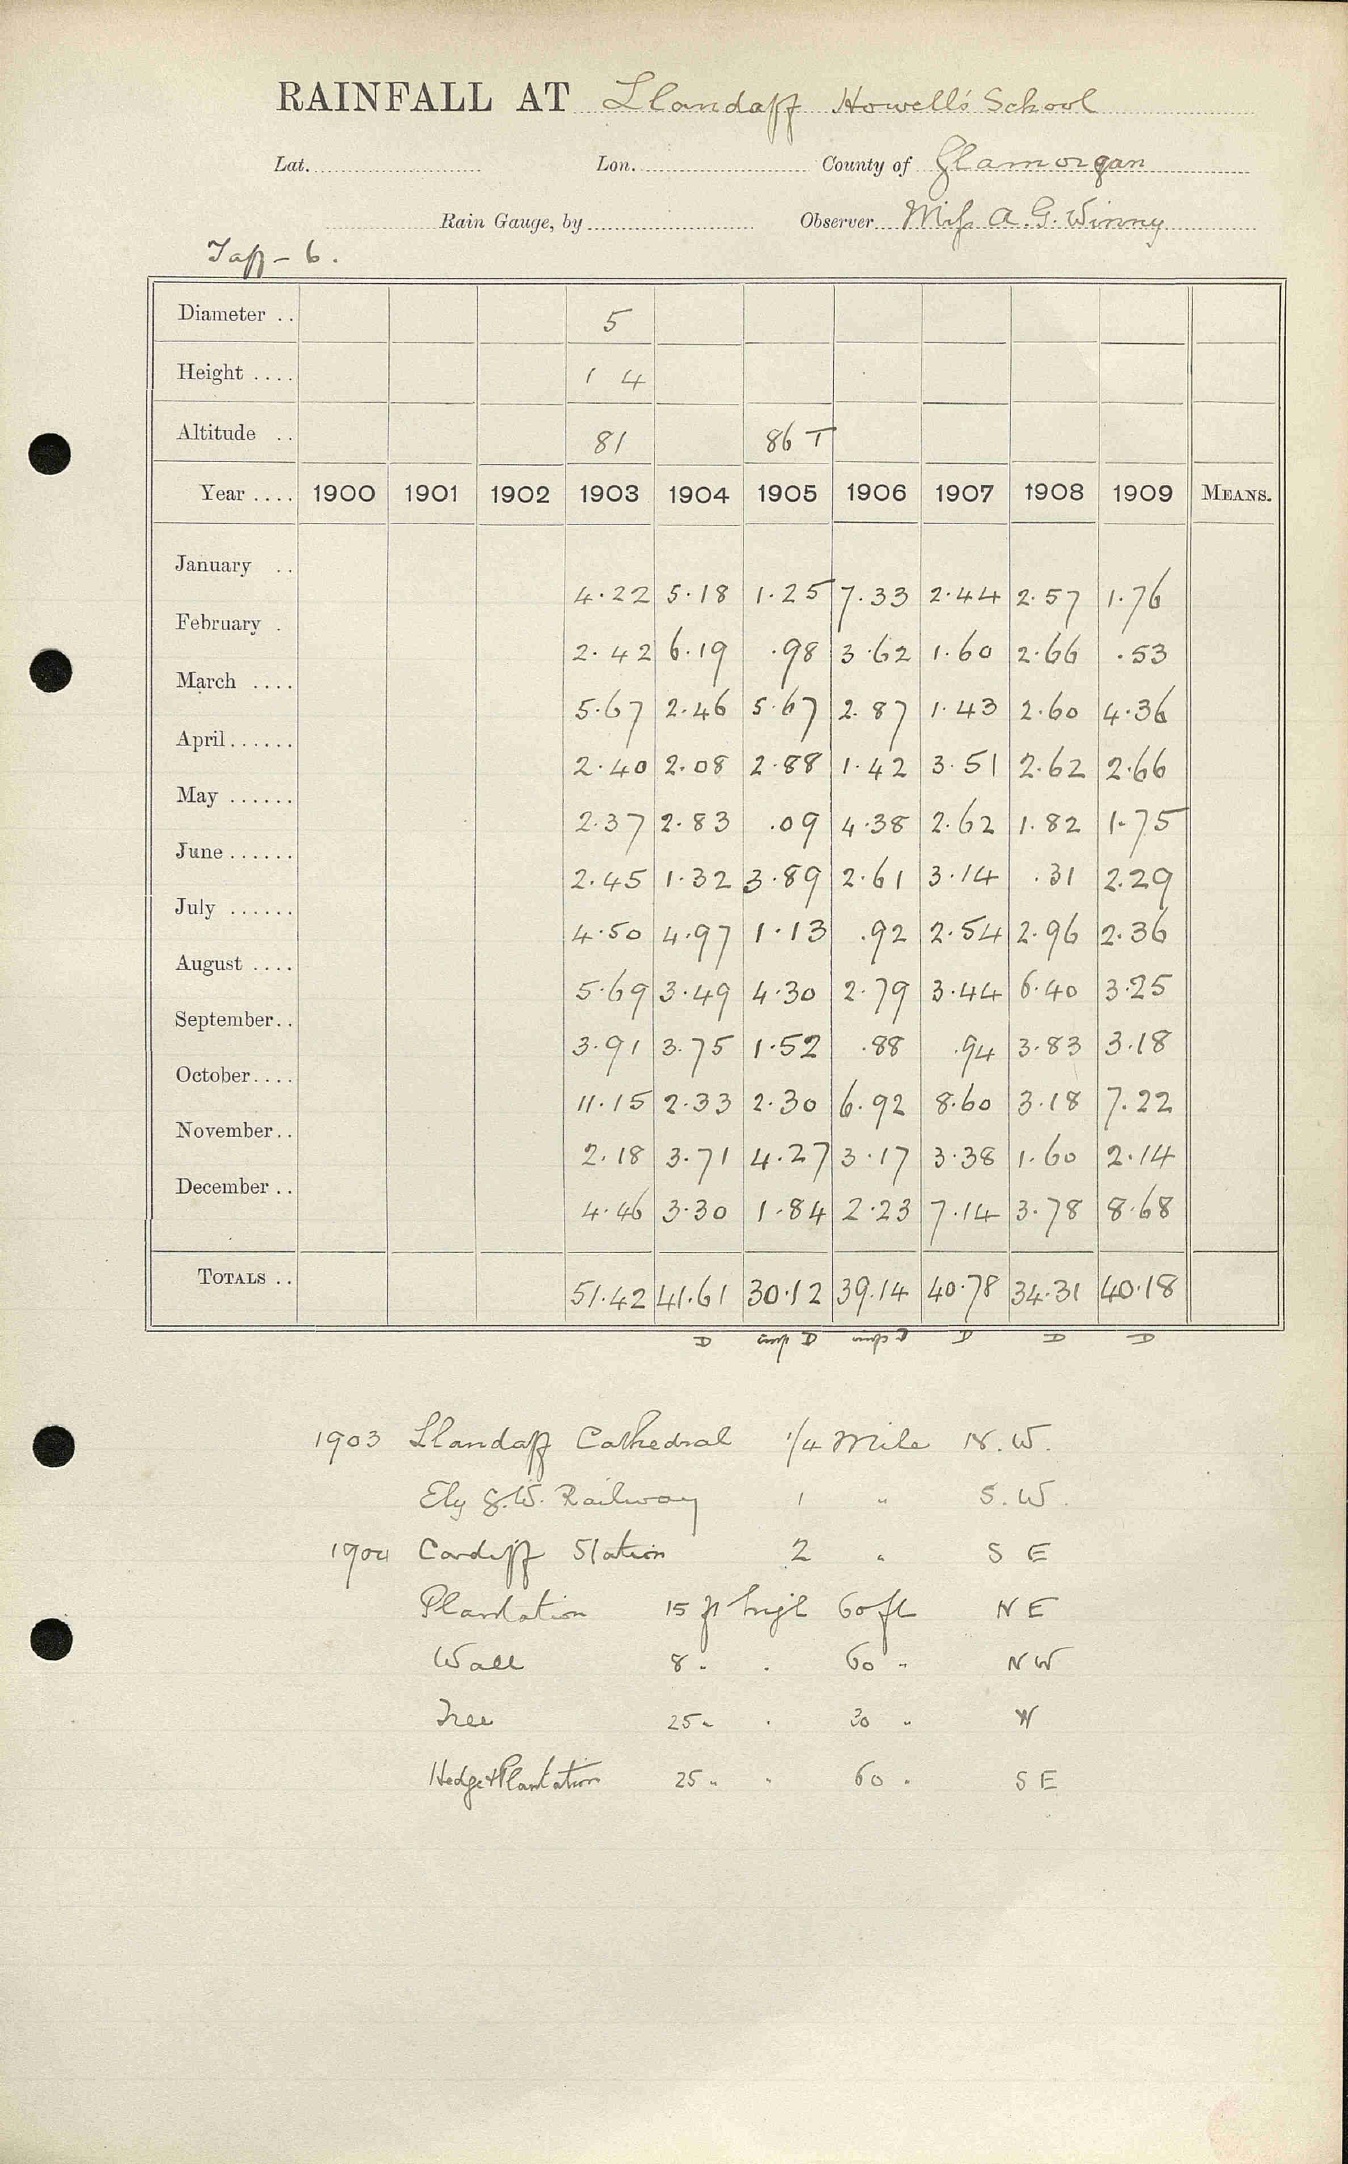 RAINFALL AT Llandaff Howell's School
Lat. Lon. County of Glamorgan
Rain Gauge, by Observer Miss A. G. Winny
Taff - 6.
Diameter .. 5
Height .... 1 4
Altitude .. 81 86 T
Year .... 1900 1901 1902 1903 1904 1905 1906 1907 1908 1909 MEANS.
January .. 4.22 5.18 1.25 7.33 2.44 2.57 1.76
February . 2.42 6.19 .98 3.62 1.60 2.66 .53
March .... 5.67 2.46 5.67 2.87 1.43 2.60 4.36
April...... 2.40 2.08 2.88 1.42 3.51 2.62 2.66
May ...... 2.37 2.83 .09 4.38 2.62 1.82 1.75
June...... 2.45 1.32 3.89 2.61 3.14 .31 2.29
July ...... 4.50 4.97 1.13 .92 2.54 2.96 2.36
August .... 5.69 3.49 4.30 2.79 3.44 6.40 3.25
September.. 3.91 3.75 1.52 .88 .94 3.83 3.18
October.... 11.15 2.33 2.30 6.92 8.60 3.18 7.22
November.. 2.18 3.71 4.27 3.17 3.38 1.60 2.14
December .. 4.46 3.30 1.84 2.23 7.14 3.78 8.68
TOTALS .. 51.42 41.61 30.12 39.14 40.78 34.31 40.18
D D D D D
1903 Llandaff Cathedral 1/4 Mile N.W.
Ely G.W. Railway 1 " S.W.
1904 Cardiff Station 2 " S E
Plantation 15 ft high 60 ft N E
Wall 8 " " 60 " N W
Tree 25 " " 30 " W
Hedge & Plantation 25 " " 60 " S E